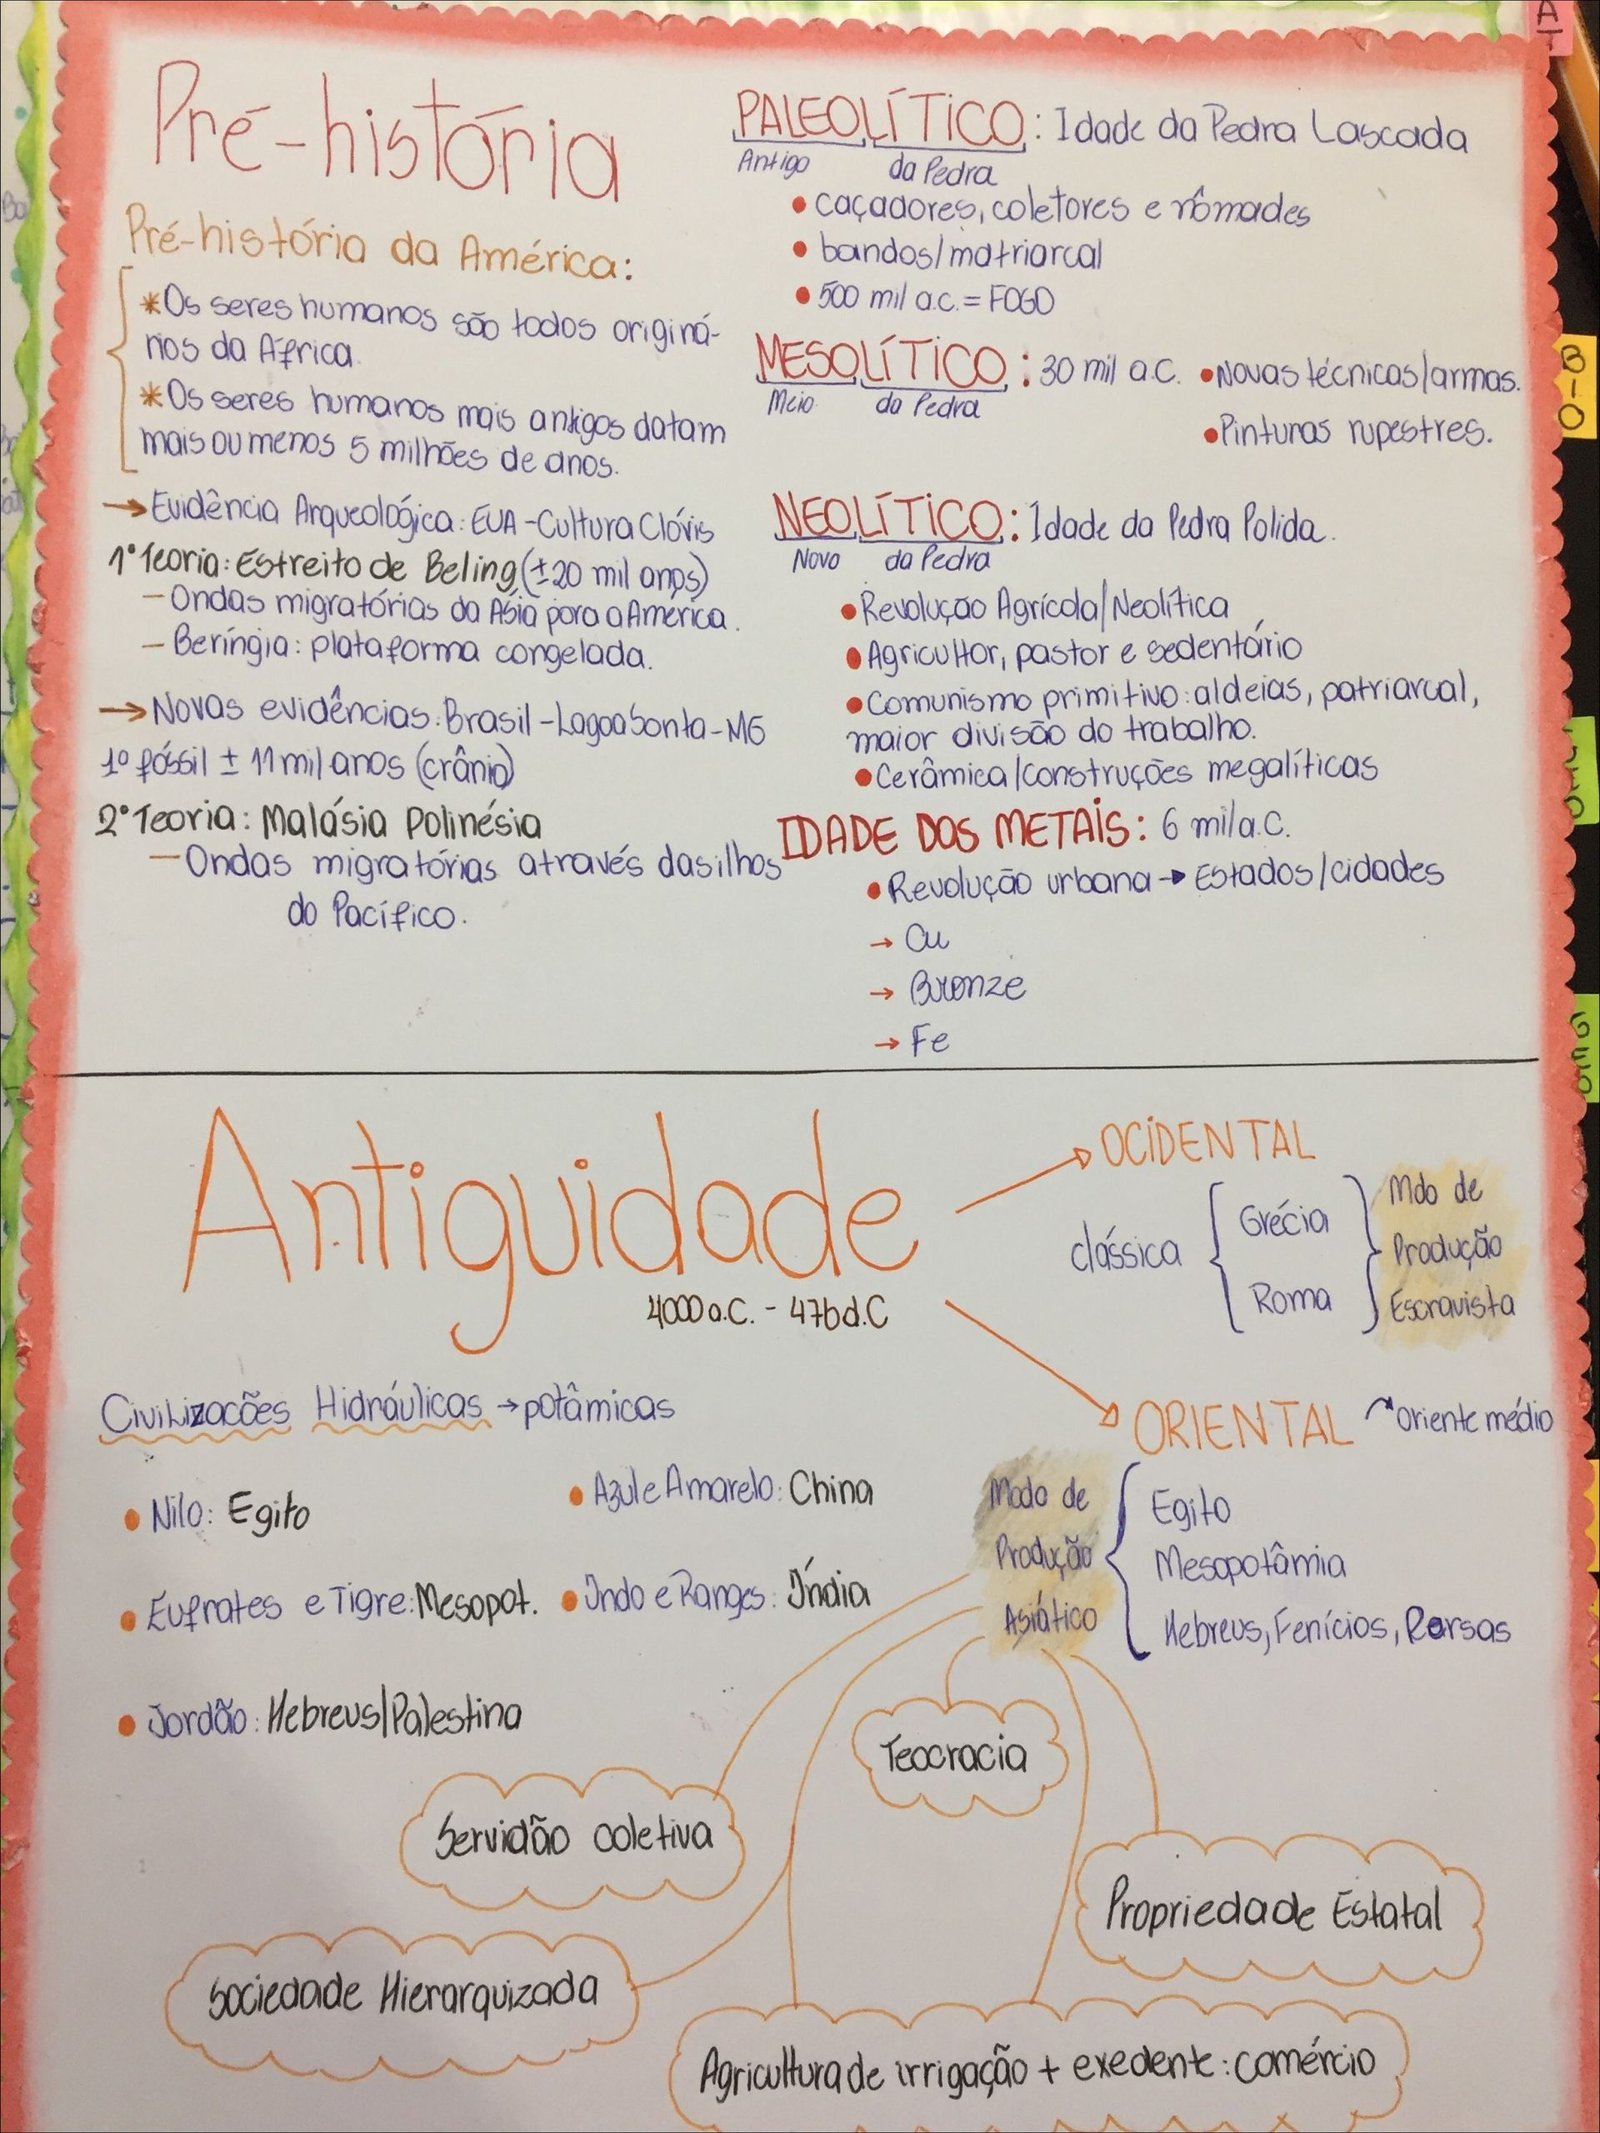 Pré-história
Pré-história da América:
*Os seres humanos são todos originá-
rios da África.
*Os seres humanos mais antigos datam
mais ou menos 5 milhões de anos.
→Evidência Arqueológica: EUA-Cultura Clóvis
1ª Teoria: Estreito de Beling (±20 mil anos)
- Ondas migratórias da Ásia para a América.
- Beríngia: plataforma congelada.
→Novas evidências: Brasil-Lagoa Santa-MG
1º fóssil ± 11 mil anos (crânio)
2ª Teoria: Malásia Polinésia
- Ondas migratórias através das ilhas
do Pacífico.
PALEOLÍTICO: Idade da Pedra Lascada
Antigo da Pedra
• caçadores, coletores e nômades
• bandos/matriarcal
• 500 mil a.c. = FOGO
MESOLÍTICO: 30 mil a.C. •Novas técnicas/armas.
Meio da Pedra
•Pinturas rupestres.
NEOLÍTICO: Idade da Pedra Polida.
Novo da Pedra
•Revolução Agrícola/Neolítica
•Agricultor, pastor e sedentário
•Comunismo primitivo: aldeias, patriarcal,
maior divisão do trabalho.
•Cerâmica/construções megalíticas
IDADE DOS METAIS: 6 mil a.C.
•Revolução urbana → Estados/cidades
→ Cu
→ Bronze
→ Fe
Antiguidade
4000 a.C. - 476 d.C
OCIDENTAL
clássica
Grécia
Roma
Mdo de
Produção
Escravista
ORIENTAL
Oriente médio
Modo de
Produção
Asiático
Egito
Mesopotâmia
Hebreus, Fenícios, Persas
Civilizacões Hidráulicas → potâmicas
• Nilo: Egito
• Azul e Amarelo: China
• Eufrates e Tigre: Mesopot.
• Indo e Ranges: Índia
• Jordão: Hebreus/Palestina
Teocracia
Servidão coletiva
Propriedade Estatal
Sociedade Hierarquizada
Agricultura de irrigação + exedente: comércio
A
T
B
I
O